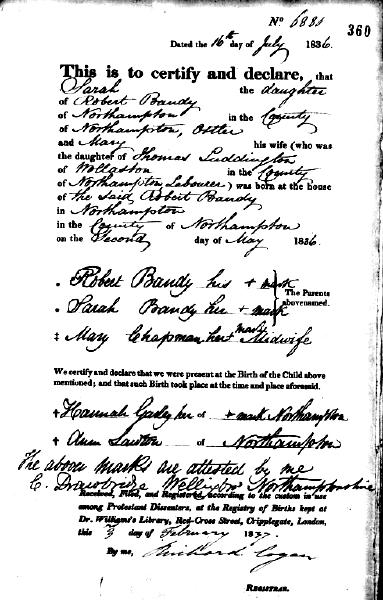 Nº 6881
360
Dated the 16th day of July 1836.
This is to certify and declare, that
Sarah the daughter
of Robert Bandy
of Northampton in the County
of Northampton, Ostler
and Mary his wife (who was
the daughter of Thomas Luddington
of Wollaston in the County
of Northampton Labourer) was born at the house
of the said Robert Bandy
in Northampton
in the County of Northampton
on the Second day of May 1836.
Robert Bandy his + mark
Sarah Bandy her + mark
The Parents
abovenamed.
Mary Chapman her + mark Midwife
We certify and declare that we were present at the Birth of the Child above
mentioned; and that such Birth took place at the time and place aforesaid.
Hannah her of + mark Northampton
Ann Lawton of Northampton
The above marks are attested by me
C. Drawbridge Wellingbro' Northamptonshire
Received, Filed, and Registered, according to the custom in use
among Protestant Dissenters, at the Registry of Births kept at
Dr. Williams's Library, Red-Cross Street, Cripplegate, London,
this 3 day of February 1837.
By me, Richard Cogan
Registrar.